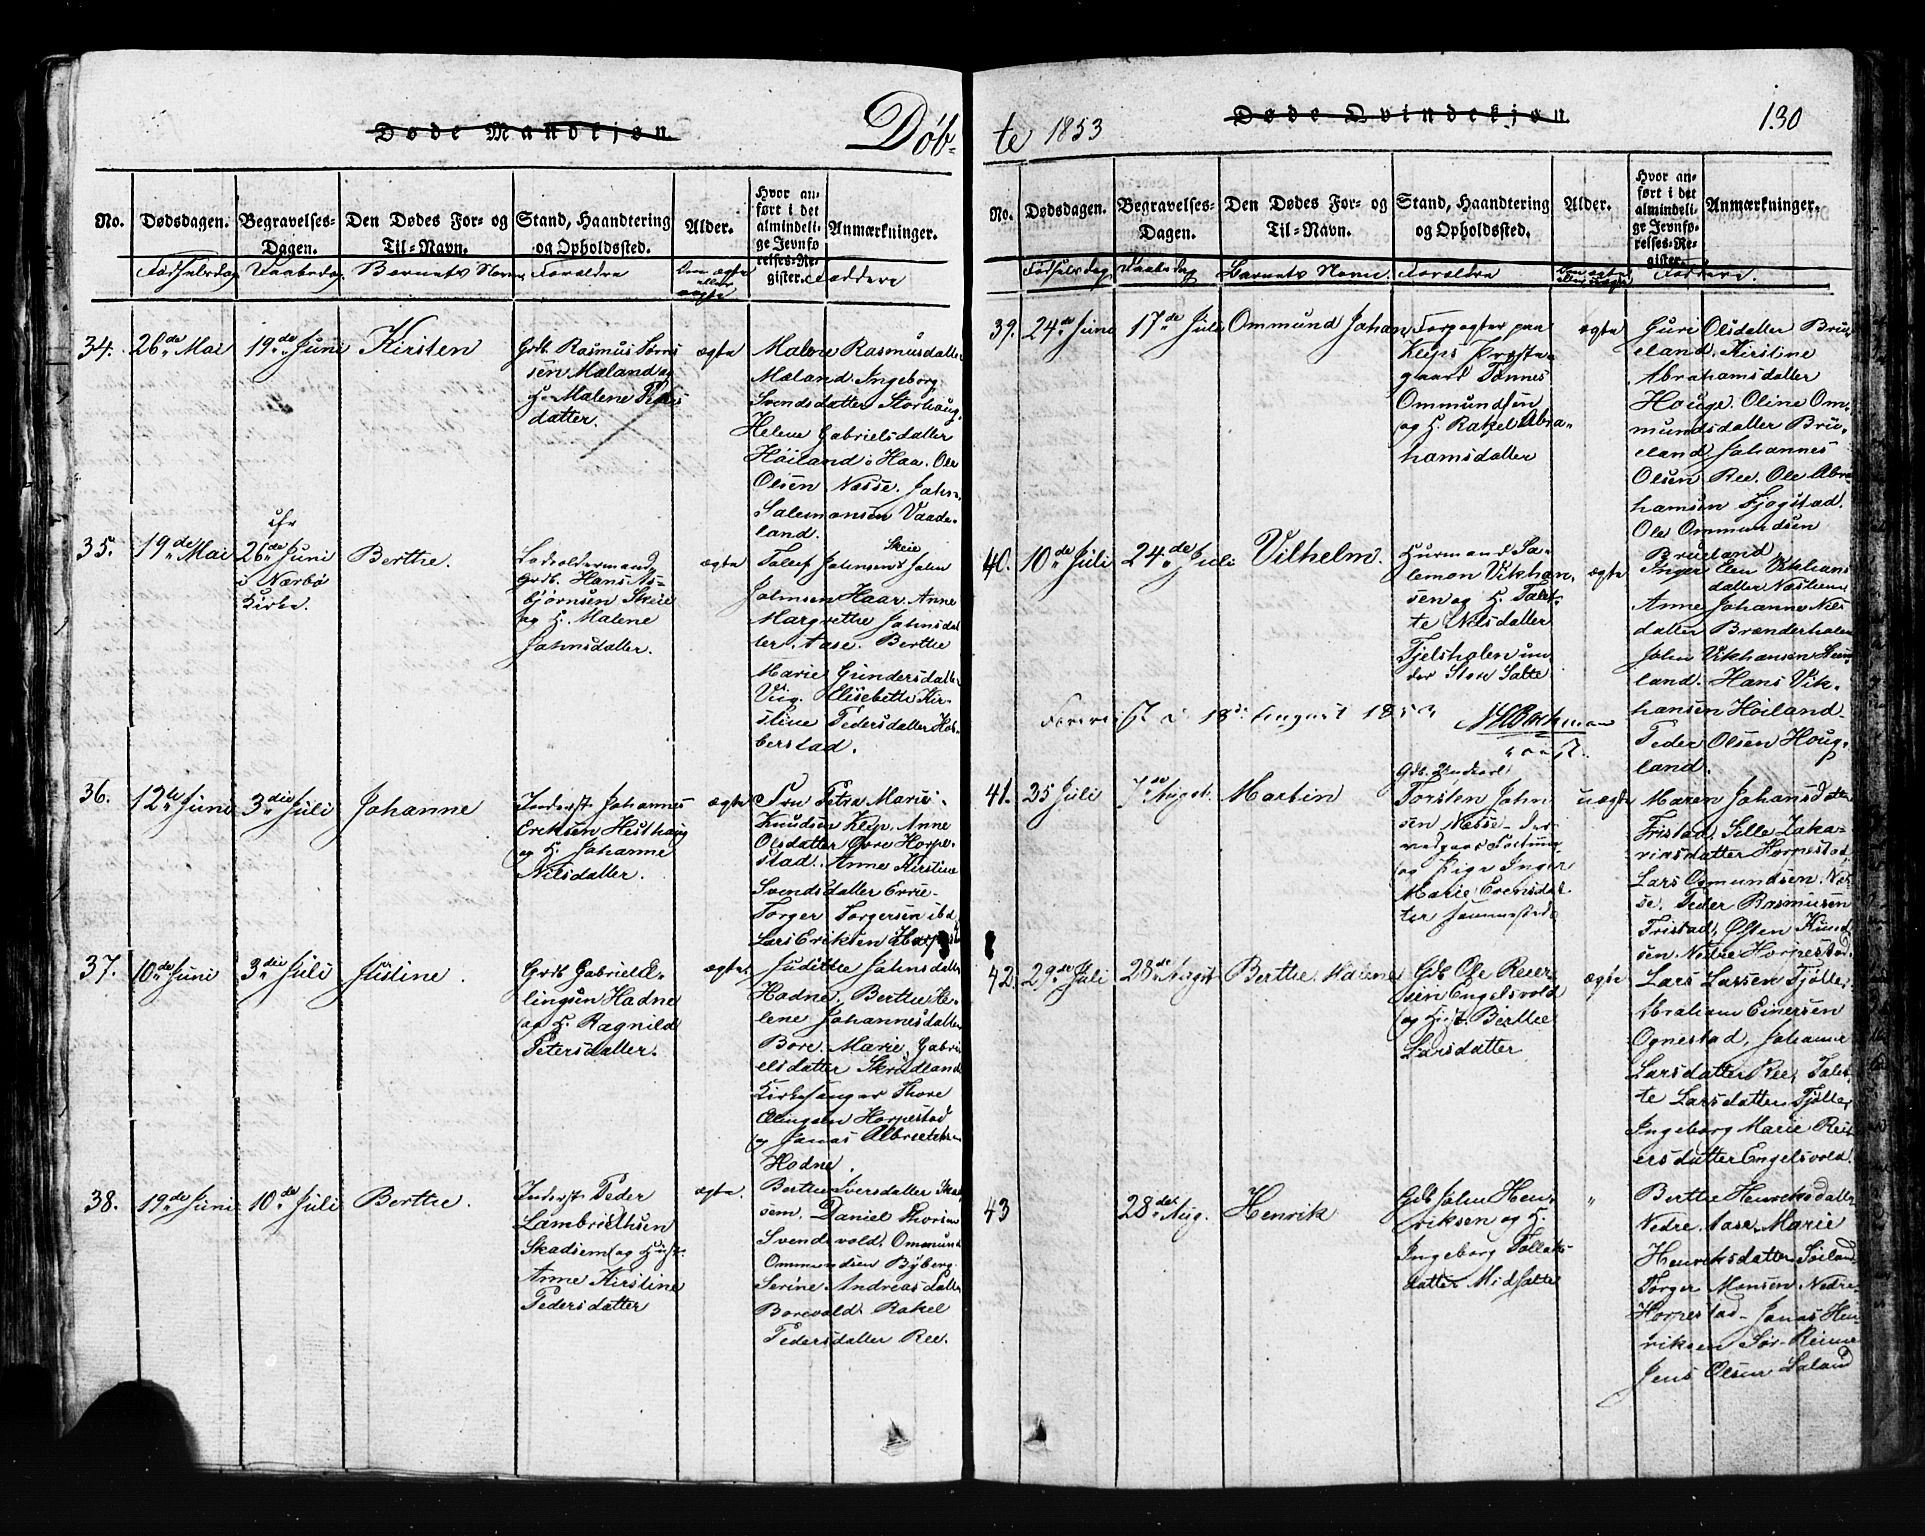 Døde Mandkjøn
Døb-
No.
Dødsdagen.
Begravelses-
Dagen.
Den Dødes For- og
Til-Navn.
Stand, Haandtering
og Opholdssted.
Alder.
Hvor an-
ført i det
almindeli-
ge Jevnfø
relses-Re-
gister.
Anmærkninger.
Fødselsdag
Daabsdag
Barnets Navn
Forældre
Om ægte
eller
uægte
Faddere
34.
26de Mai
19de Juni
Kirsten
Grdb. Rasmus Sørns
sen Mæland og
H. Malene Peders
datter.
ægte
Malene Rasmusdatter
Mæland. Ingeborg
Svendsdatter Storhaug.
Helene Gabrielsdatter
Høiland i Haa. Ole
Olsen Næsse. John
Salemonsen Vaade-
land.
35.
19de Mai
26de Juni
i Nærbø
Kirke.
Berthe.
Ledsoldermand
Grdb. Hans As-
bjørnsen Skeie
og H. Malene
Johnsdatter.
ægte
Skeie
Tolef Johnsen John
Johnsen Haar. Anne
Margrethe Johnsdat
ter. Aase. Berthe
Marie Gundersdatter
Vig. Elisebethe Kir-
stine Pedersdatter Hob-
berstad.
36.
12te Juni
3die Juli
Johanne
Inderst Johannes
Eriksen Hesthaug
og H. Johanne
Nilsdatter.
ægte
Fru Petra Marie
Knudsen Klep. Anne
Olsdatter Øvre Horpe-
stad. Anne Kirstine
Svendsdatter Ervie-
Torger Torgersen ibd.
Lars Eriksen Horpestad
37.
10de Juni
3die Juli
Justine.
Grdb Gabriel El-
lingsen Hadne
og H. Ragnild
Petersdatter.
ægte.
Judithe Johnsdatter
Hodne. Berthe He-
lene Johannesdatter
Bore. Marie Gabri-
elsdatter Skrudland
Kirkesanger Thore
Ellingsen Horpestad
og Jonas Albretsen
Hodne.
38.
19de Juni
10de Juli
Berthe.
Inderst Peder
Lambrethsen
Skadsem og Hust.
Anne Kirstine
Pedersdatter
ægte.
Berthe Iversdatter Skad
sem. Daniel Thorsen
Svendsvold. Ommund
Ommundsen Byberg.
Serine Andreasdatter
Borevold. Rakel
Pedersdatter Ree.
te 1853
Døde Qvindekjøn
130
No.
Dødsdagen.
Begravelses-
Dagen.
Den Dødes For- og
Til-Navn.
Stand, Haandtering
og Opholdssted.
Alder.
Hvor an-
ført i det
almindeli-
ge Jevnfø-
relses-Re-
gister.
Anmærkninger.
Fødselsdag
Daabsdag
Barnets Navn.
Forældre
Om ægte
eller uægte
Faddere.
39.
24de Juni
17de Juli
Ommund Johan
Forpagter paa
Kleps Præste-
gaard Tønnes
Ommundsen
og H. Rakel Abra-
hamsdatter
ægte
Guri Olsdatter Bru-
eland. Kirstine
Abrahamsdatter
Houge. Oline Om-
mundsdatter Bru-
eland Johannes
Olsen Ree. Ole Abra-
hamsen Fjogstad.
Ole Ommundsen
Brueland
40.
10de Juli
24de Juli
Vilhelm.
Huusmand Sa-
lemon Vikhan-
sen og H. Talet-
te Nilsdatter
Fjelshølen un-
der Store Salte
ægte
Inger Elen Vikhans
datter Næsseim
Anne Johanne Niels
datter Brønderhølen
John Vikhansen
land. Hans Vik-
hansen Høiland-
Peder Olsen Houg-
land.
Forevist d. 18de August 1853
41.
25 Juli
7de Augst.
Martin
Gdb. Ungkarl
Torsten John
sen Næsse
og Pige Inger
Marie Evensdat
ter
uægte
Maren Johansdatter
Fristad. Sille Zaka-
riasdatter Horpestad,
Lars Osmundsen. Næs-
se. Peder Rasmusen
Fristad, Østen Knud
sen Nedre Horpestad.
42.
29de Juli
28de Augst
Berthe Malene
Gdb Ole Reier-
sen Engelsvold
og H. Berthe
Larsdatter
ægte
Lars Larsen Tjøtte,
Abraham Einersen
Ognestad, Johanne
Larsdatter Ree, Talet-
te Larsdatter Tjøtte,
Ingeborg Marie Rei-
ersdatter Engelsvold.
43
28de Aug.
Henrik
Gdb John Hen-
riksen og H.
Ingeborg Tollaks-
datter Midsalte
"
Berthe Henriksdatter
Nedre Aase. Marie
Henriksdatter Soiland
Torger Monsen Nedre-
Horpestad- Jonas Hen-
riksen Sør-Reime
Jens Olsen Laland